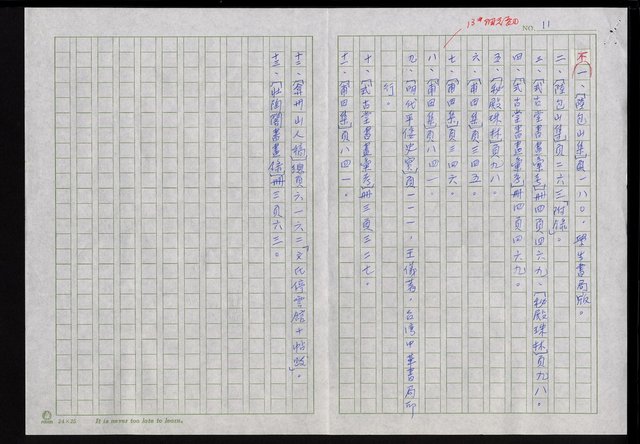 NO. 11
一、〔陸包山集〕頁一八〇。學生書局版。
二、〔陸包山集〕頁二六三「附錄」。
三、〔式古堂書畫彙考〕冊四頁四六九、〔秘殿珠林〕頁九八。
四、〔式古堂書畫彙考〕冊四頁四六九。
五、〔秘殿珠林〕頁九八。
六、〔甫田集〕頁三四五。
七、〔甫田集〕頁三四六。
八、〔甫田集〕頁八四一。
九、〔明代平倭史實〕頁一一一，王儀著，台灣中華書局印
行。
十、〔式古堂書畫彙考〕冊三頁三二七。
十一、〔甫田集〕頁八四一。
十二、〔弇州山人稿〕總頁六一六二「文氏停雲館十帖跋」。
十三、〔壯陶閣書畫錄〕冊三頁六三。
24×25 It is never too late to learn.